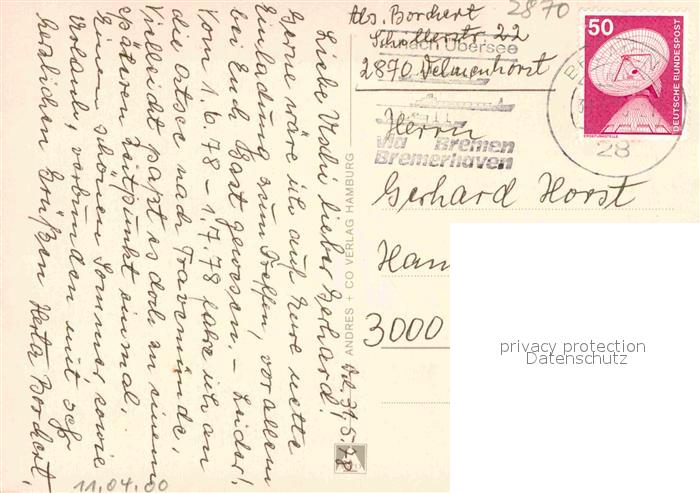 Liebe Uschi lieber Gerhard!
Gerne wäre ich auf Eure nette
Einladung zum Treffen, vor allem
bei Euch, Gast gewesen. – Leider!
Von 1.6.78 – 1.7.78 fahre ich an
die Ostsee nach Travemünde.
Vielleicht paßt es doch zu einem
spätern Zeitpunkt einmal.
Einen schönen Sommer sowie
Urlaub, verbunden mit sehr
herzlichen Grüßen Herta Borchert.
11.04.00
31.5.78
ANDRES + CO VERLAG HAMBURG
2870
Abs. Borchert
Schillerstr. 22
2870 Delmenhorst
nach Übersee
via Bremen
Bremerhaven
28
50
DEUTSCHE BUNDESPOST
ERDEFUNKSTELLE
Herrn
Gerhard Horst
Han
3000
privacy protection
Datenschutz